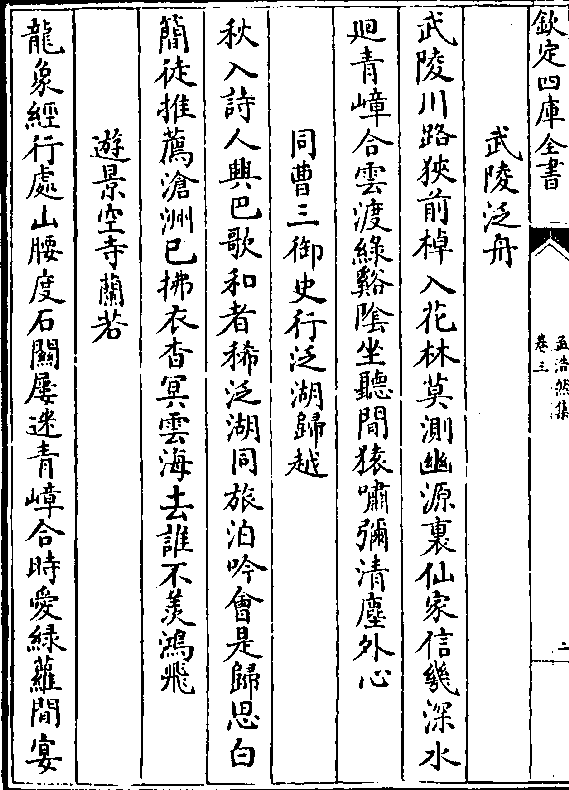 欽定四庫全書
孟浩然集
卷三
二
武陵泛舟
武陵川路狹前棹入花林莫測幽源裏仙家信幾深水
迴青嶂合雲渡綠谿隂坐聽閒猿嘯彌清塵外心
同曹三御史行泛湖歸越
秋入詩人興巴歌和者稀泛湖同旅泊吟會是歸思白
簡徒推薦滄洲已拂衣杳冥雲海去誰不羨鴻飛
遊景空寺蘭若
龍象經行處山腰度石關屢迷青嶂合時愛綠蘿間宴